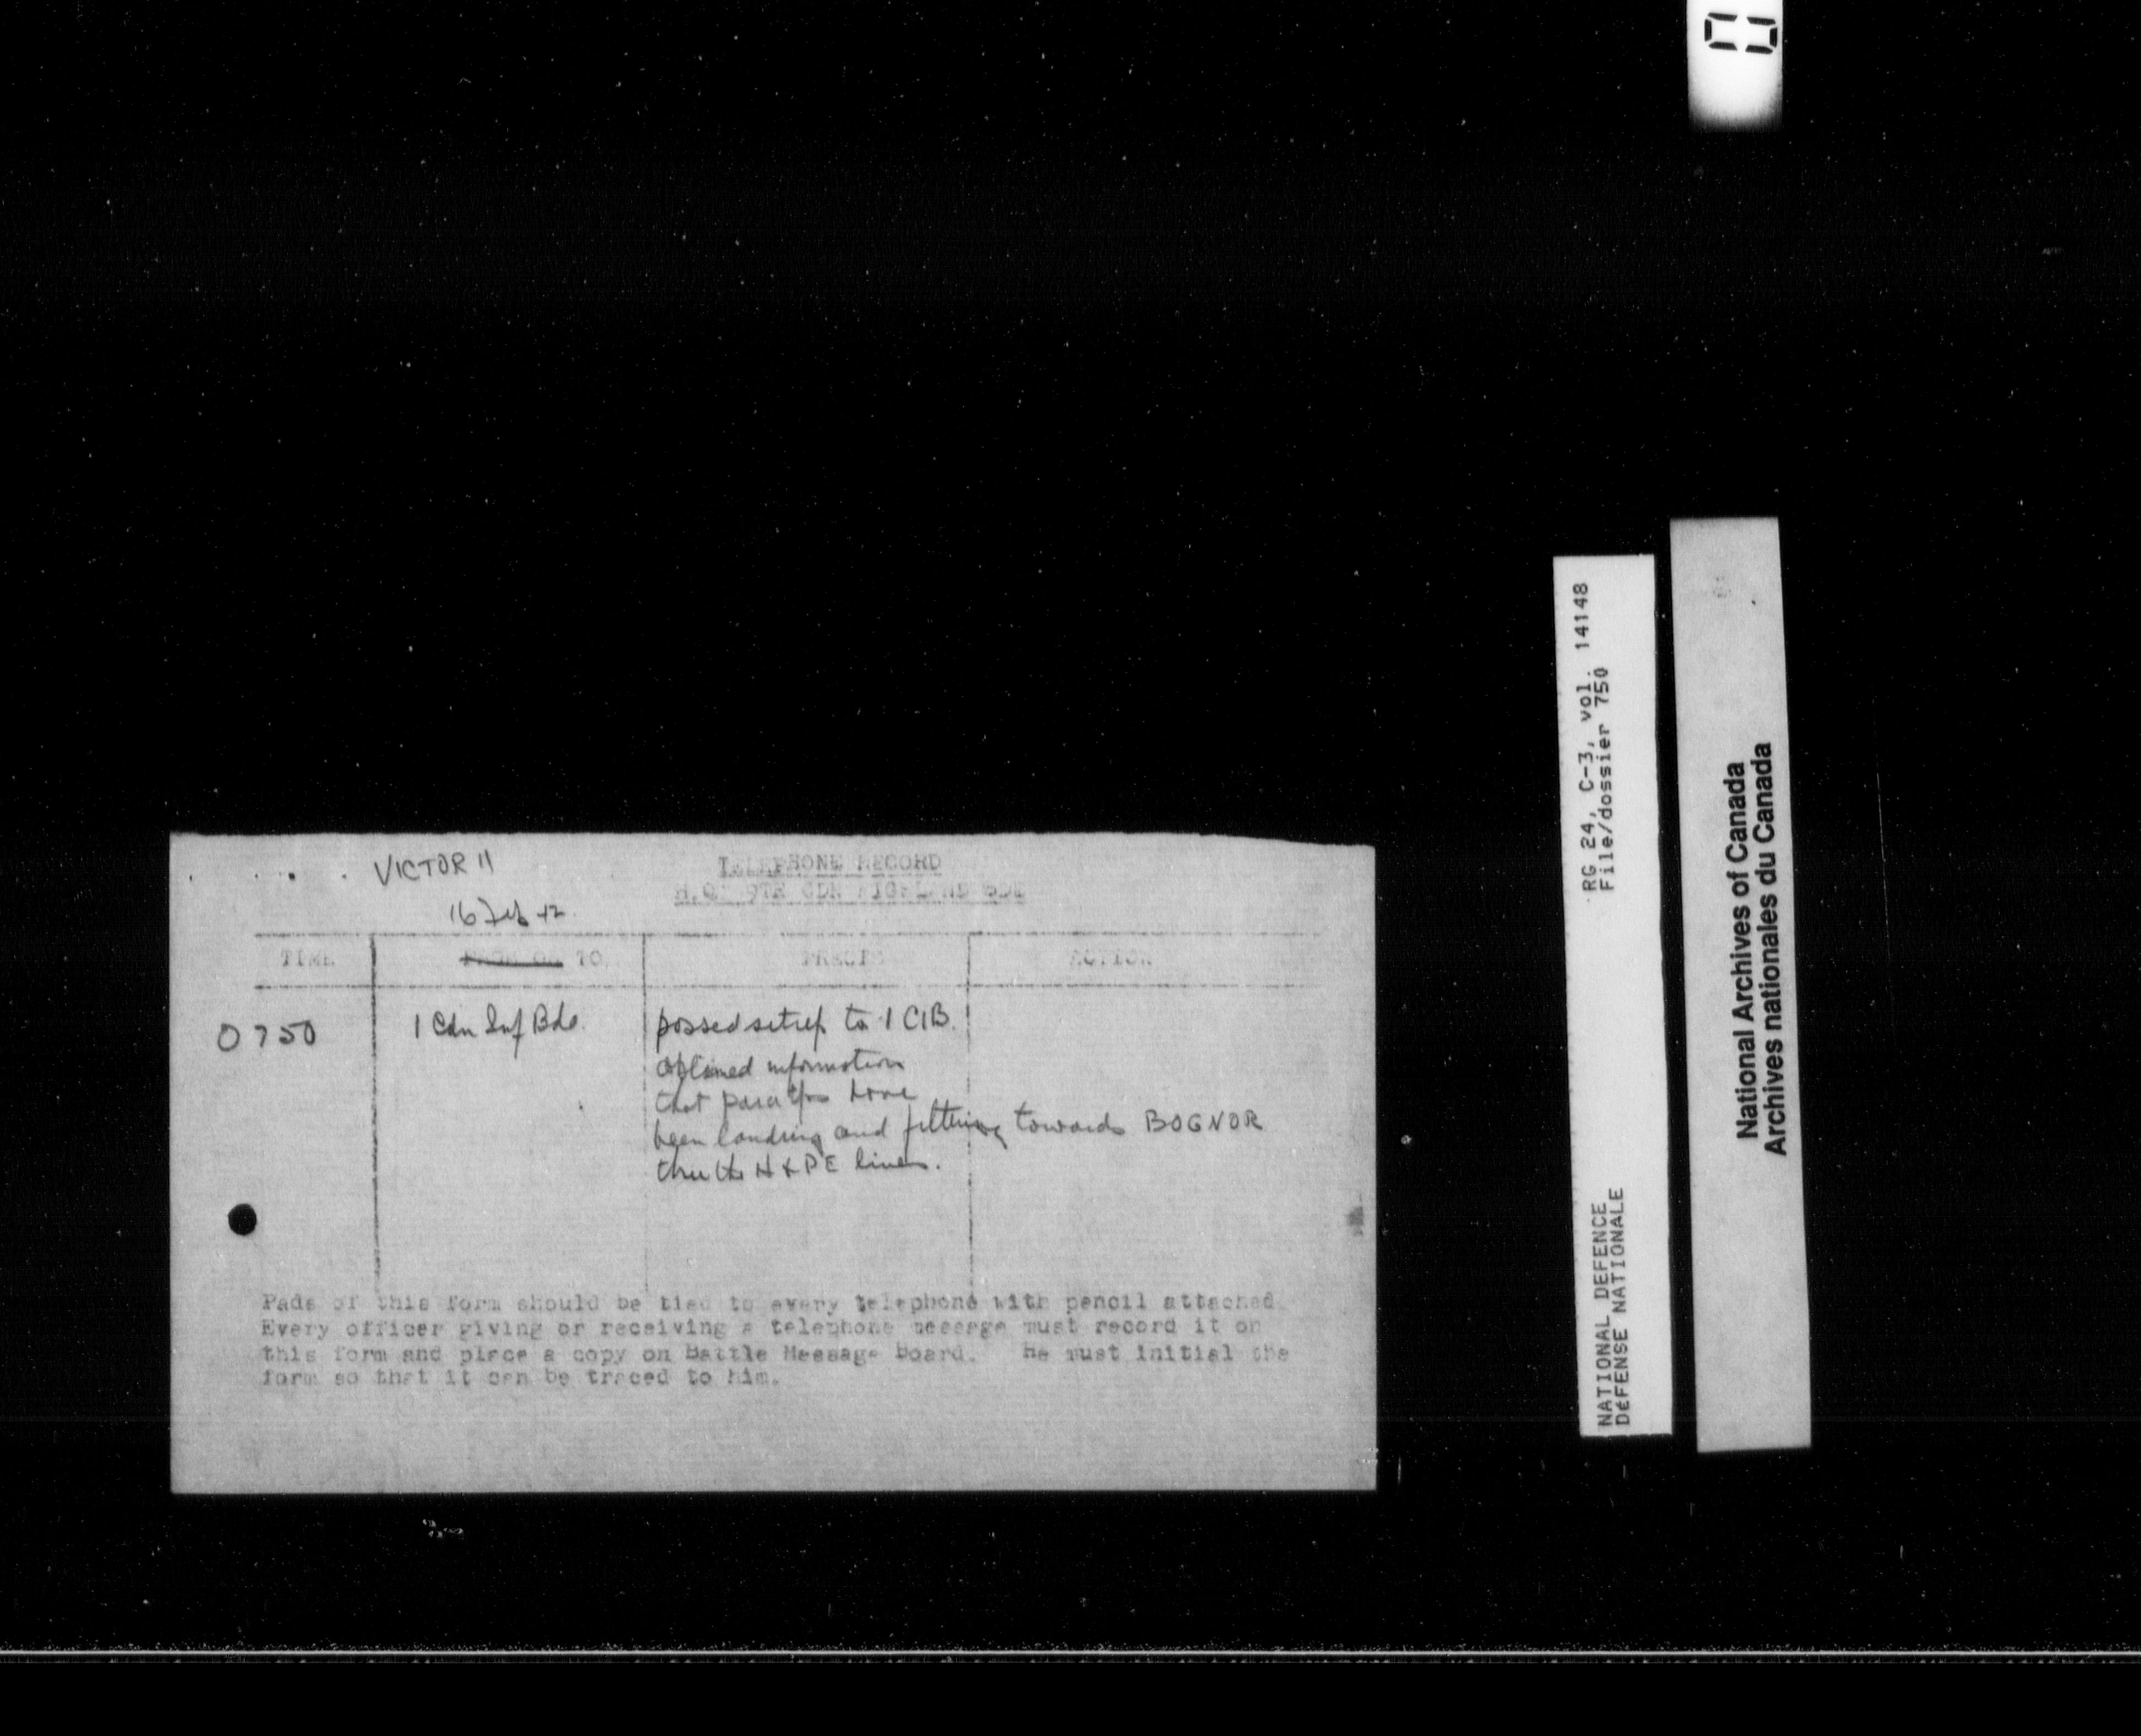 VICTOR 11
TELEPHONE RECORD
H.Q. 9TH CDN HIGHLAND BDE
16 Feb 42
TIME FROM OR TO PRECIS ACTION
0750 1 Cdn Inf Bde. passed sitrep to 1 CIB.
obtained information
that para tps have
been landing and filtering towards BOGNOR
thru the H & PE lines.
Pads of this form should be tied to every telephone with pencil attached.
Every officer giving or receiving a telephone message must record it on
this form and place a copy on Battle Message Board. He must initial the
form so that it can be traced to him.
RG 24, C-3, vol. 14148
File/dossier 750
NATIONAL DEFENCE
DÉFENSE NATIONALE
National Archives of Canada
Archives nationales du Canada